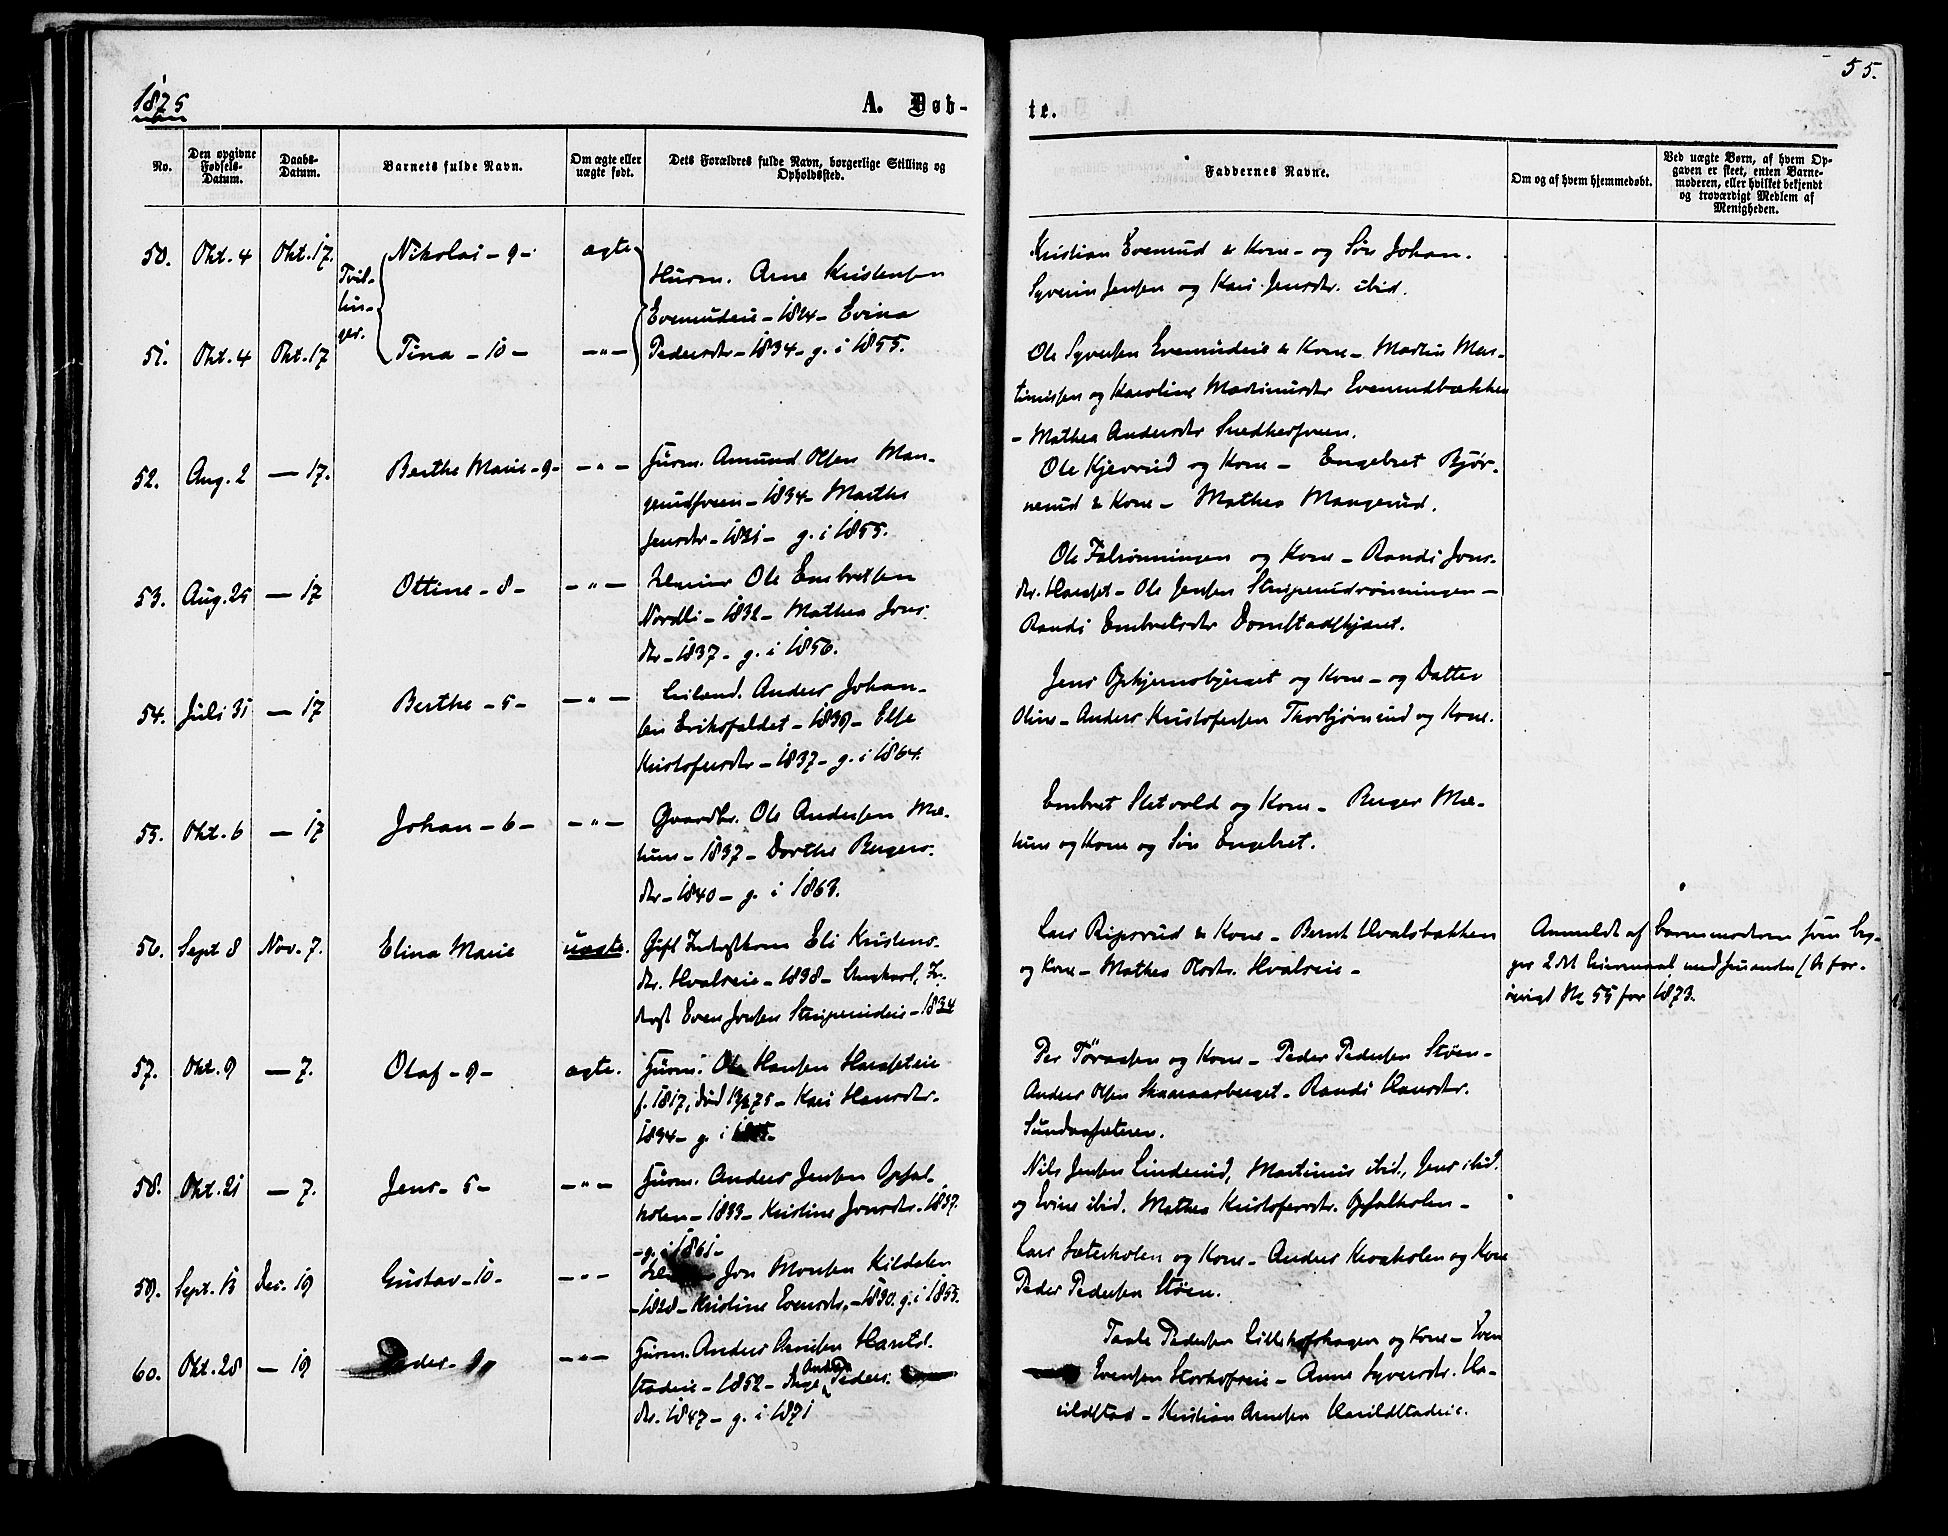 1875
A. Døb-
te.
55.
No.
Den opgivne Fødsels-Datum.
Daabs-Datum.
Barnets fulde Navn.
Om ægte eller uægte født.
Dets Forældres fulde Navn, borgerlige Stilling og Opholdssted.
Faddernes Navne.
Om og af hvem hjemmedøbt.
Ved uægte Børn, af hvem Op-
gaven er skeet, enten Barne-
moderen, eller hvilket bekjendt
og troværdigt Medlem af
Menigheden.
50. Okt. 4 Okt. 17. Nikolai – 9 – ægte
Tvil-
lin-
ger.
Husm. Arne Kristensen
Evemudeie – 1824 – Evina
51. Okt. 4 Okt. 17 Tina – 10 – – " – Pedersdtr – 1834 – g. i 1855.
Kristian Evemud & Kone – og Søn Johan.
Syverin Jensen og Kari Jensdtr. ibid.
Ole Syversen Evemudeie & Kone – Martin Mar-
tinussen og Karoline Martinusdtr Evemudbækken
– Mathea Andersdtr Snedkersveen.
52. Aug. 2 – 17. Berthe Marie – 9 – – " – Husm. Amund Olsen Man-
gerudsveen – 1834 – Marthe
Jensdtr – 1831 – g. i 1855.
Ole Kjevrud og Kone – Engebret Bjør-
nerud & Kone – Mathea Mangerud.
53. Aug. 25 – 17 Ottine – 8 – – " – Ole Embretsen
Nordli – 1832 – Mathea Jons-
dtr – 1837 – g. i 1856.
Ole Falrønningen og Kone – Randi Jons-
dtr. Haraset – Ole Jensen Stuperudrønningen –
Randi Embretsdtr Domstadskjæret.
54. Juli 31 – 17 Berthe – 5 – – " – Leilænd. Anders Johan-
sen Eriksfaldet – 1839 – Else
Kristofersdtr – 1837 – g. i 1864.
Jens Opkjernsbjerget og Kone – og Datter
Oline – Anders Kristofersen Thorbjørnrud og Kone.
55. Okt. 6 – 17 Johan – 6 – – " – Gaardbr. Ole Andersen Mæ-
hum – 1837 – Dorthe Bergers-
dtr – 1840 – g. i 1863.
Embret Sletvold og Kone – Berger Mæ-
hum og Kone og Søn Engebret.
56. Sept 8 Nov. 7. Elina Marie uægte. Gift Inderstkone Eli Kristens-
dtr. Hvalseie – 1838 – Ungkarl, In-
derst Even Jonsen Stuperudeie – 1834
Lars Ripsrud & Kone – Bernt Hvalsbakken
og Kone – Mathea Olsdtr. Hvalseie –
Anmeldt af Barnemoderen som be-
ger 2det Leiermaal med samme /
øvrigt No 55 for 1873.
57. Okt. 9 – 7. Olaf – 9 – ægte. Husm. Ole Hansen Haraseteie
f. 1817, død 75 – Kari Hansdtr.
1834 – g. i
Per Tøraasen og Kone – Peder Pedersen Støen –
Anders Olsen Skaraasberget – Randi Hansdtr.
Sundaassæteren.
58. Okt. 21 – 7. Jens – 5 – – " – Husm. Anders Jensen Opsal-
holen – 1833 – Kristine Jonsdtr. 1837.
– g. i 1861 –
Nils Jensen Linderud, Martinus ibid., Jens ibid.
og Evine ibid. Mathea Kristofersdtr. Opsalholen –
59. Sept. 13 Dec. 19 Gustav – 10 – – " – Jon Monsen Kildalen
– 1828 – Kristine Evensdtr. – 1830. g. i 1853.
Lars Sæterholen og Kone – Anders Kvaholen og Kone
Peder Pedersen Støen.
60. Okt. 28 – 19 Peder – – " – Husm. Anders Arnesen Harild-
stadeie – 1852 – Inge Peders-
dtr. 1847 – g. i 1871
Taale Pedersen Lillehofshagen og Kone – Even
Evensen Storhofseie – Anne Syversdtr. Ha-
rildstad – Kristian Arnesen Harildstadeie.